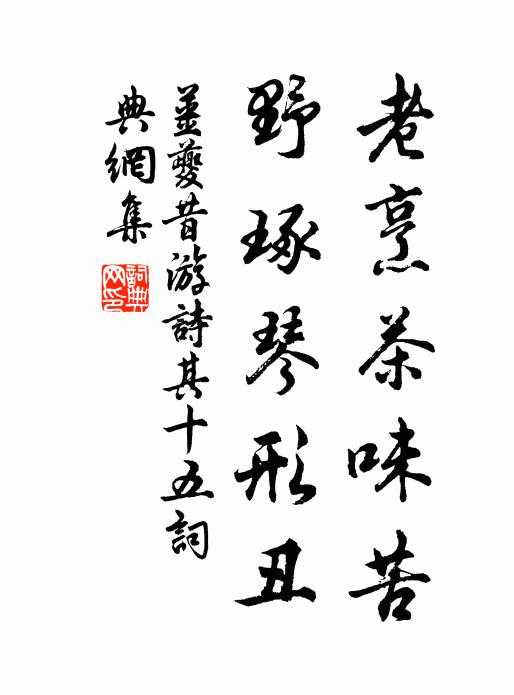 老烹茶味苦
野琢琴形丑
姜夔昔游詩其十五詞
典網集
詞典
网印